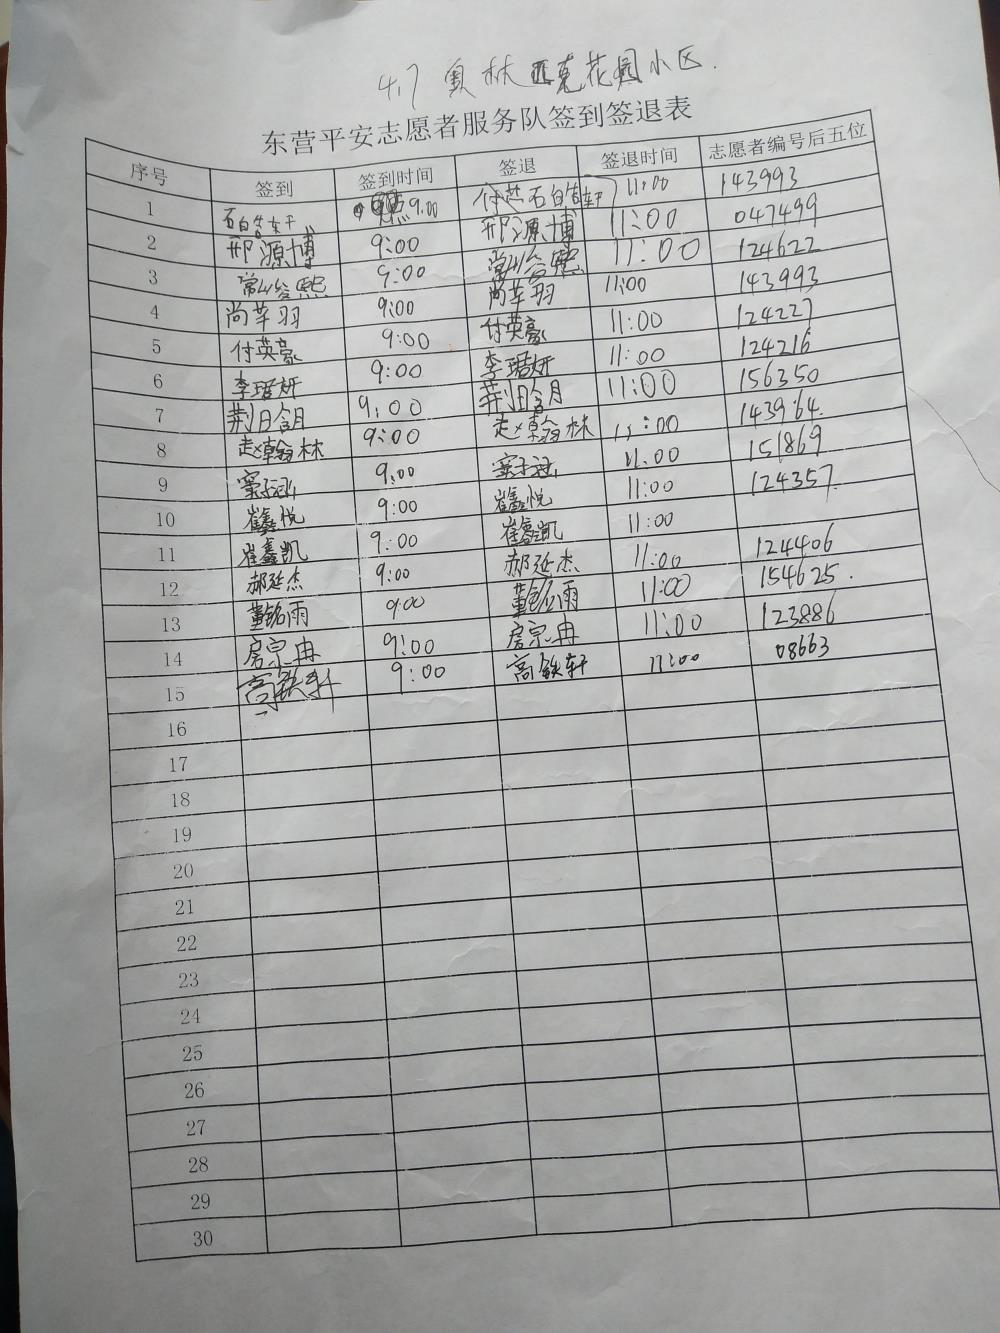 4.7 奥林匹克花园小区.
东营平安志愿者服务队签到签退表
序号 签到 签到时间 签退 签退时间 志愿者编号后五位
1 9:00 11:00 143993
2 邢源博 9:00 邢源博 11:00 047499
3 9:00 11:00 124622
4 尚莘羽 9:00 尚莘羽 11:00 143993
5 付英豪 9:00 付英豪 11:00 124227
6 李珺妍 9:00 李珺妍 11:00 124216
7 荆晗月 9:00 荆晗月 11:00 156350
8 赵翰林 9:00 赵翰林 11:00 143964.
9 窦子涵 9:00 窦子涵 11:00 151869
10 崔鑫悦 9:00 崔鑫悦 11:00 124357
11 崔鑫凯 9:00 崔鑫凯 11:00
12 郝延杰 9:00 郝延杰 11:00 124406
13 董铭雨 9:00 董铭雨 11:00 154625.
14 房宗冉 9:00 房宗冉 11:00 123886
15 高铁轩 9:00 高铁轩 11:00 08663
16
17
18
19
20
21
22
23
24
25
26
27
28
29
30